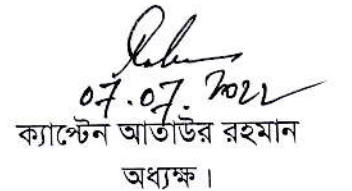 07.07.2022
ক্যাপ্টেন আতাউর রহমান
অধ্যক্ষ।